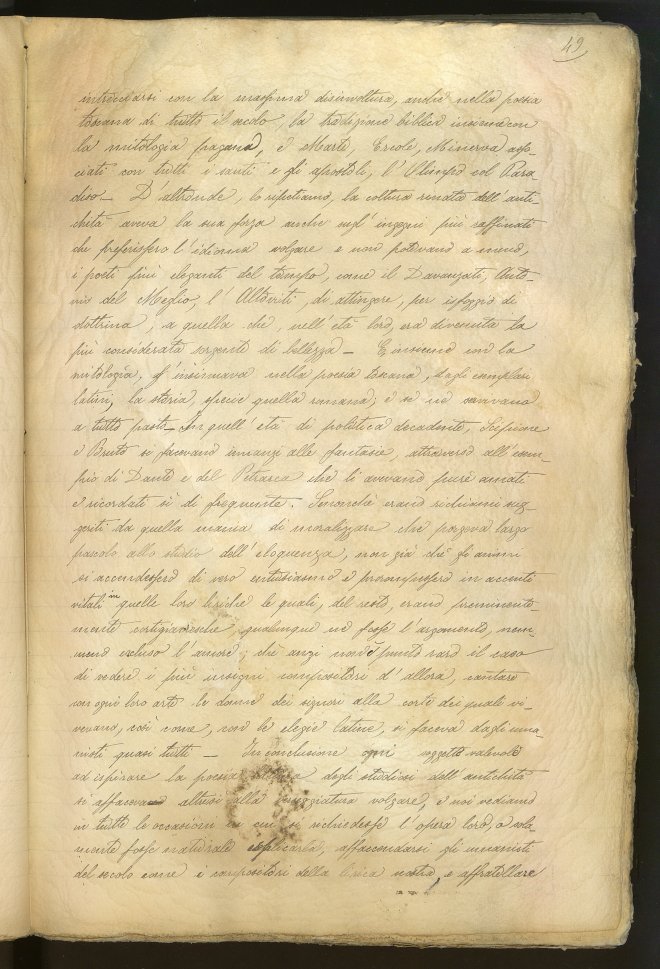 49
intrecciarsi con la massima disinvoltura, anche nella poesia
toscana di tutto il secolo, la tradizione biblica insieme con
la mitologia pagana, e Marte, Ercole, Minerva asso-
ciati con tutti i santi e gli apostoli, l'Olimpo col Para
diso_ D'altronde, lo ripetiamo, la coltura rinata dell'anti-
chità aveva la sua forza anche sugl'ingegni più raffinati
che preferissero l'idioma volgare e non potevano a meno,
i poeti più eleganti del tempo, come il Davanzati, Anto-
nio del Meglio, l'Altoviti, di attingere, per isfoggio di
dottrina, a quella che, nell'età loro, era divenuta la
più considerata sorgente di bellezza_ E insieme con la
mitologia, s'insinuava nella poesia toscana, dagli esemplari
latini, la storia, specie quella romana; e se ne
a tutto pasto_ In quell'età di politica decadente, Scipione
e Bruto si facevano innanzi alle fantasie, attraverso all'esem-
pio di Dante e del Petrarca che li avevano pure amati
e ricordati sì di frequente. Senonchè erano richiami sug-
geriti da quella mania di moralizzare che porgeva largo
pascolo allo studio dell'eloquenza, non già che gli animi
si accendessero di vero entusiasmo e prorompessero in accenti
vitali in quelle loro liriche le quali, del resto, erano preminente-
mente cortigianesche qualunque ne fosse l'argomento, nem-
meno escluso l'amore; chè anzi non è punto raro il caso
di vedere i più insigni compositori d'allora, cantare
con ogni loro arte le donne dei signori alla corte dei quali vi-
vevano, così come, con le elegie latine, si faceva dagli uma-
nisti quasi tutti _ In conclusione ogni soggetto valevole
ad ispirare la poesia degli studiosi dell'antichità
si affacciava altresì alla volgare, e noi vediamo
in tutte le occasioni in cui si richiedesse l'opera loro, o sola-
mente fosse naturale esplicarla, affaccendarsi gli umanisti
del secolo come i compositori della lirica nostra, e affratellare